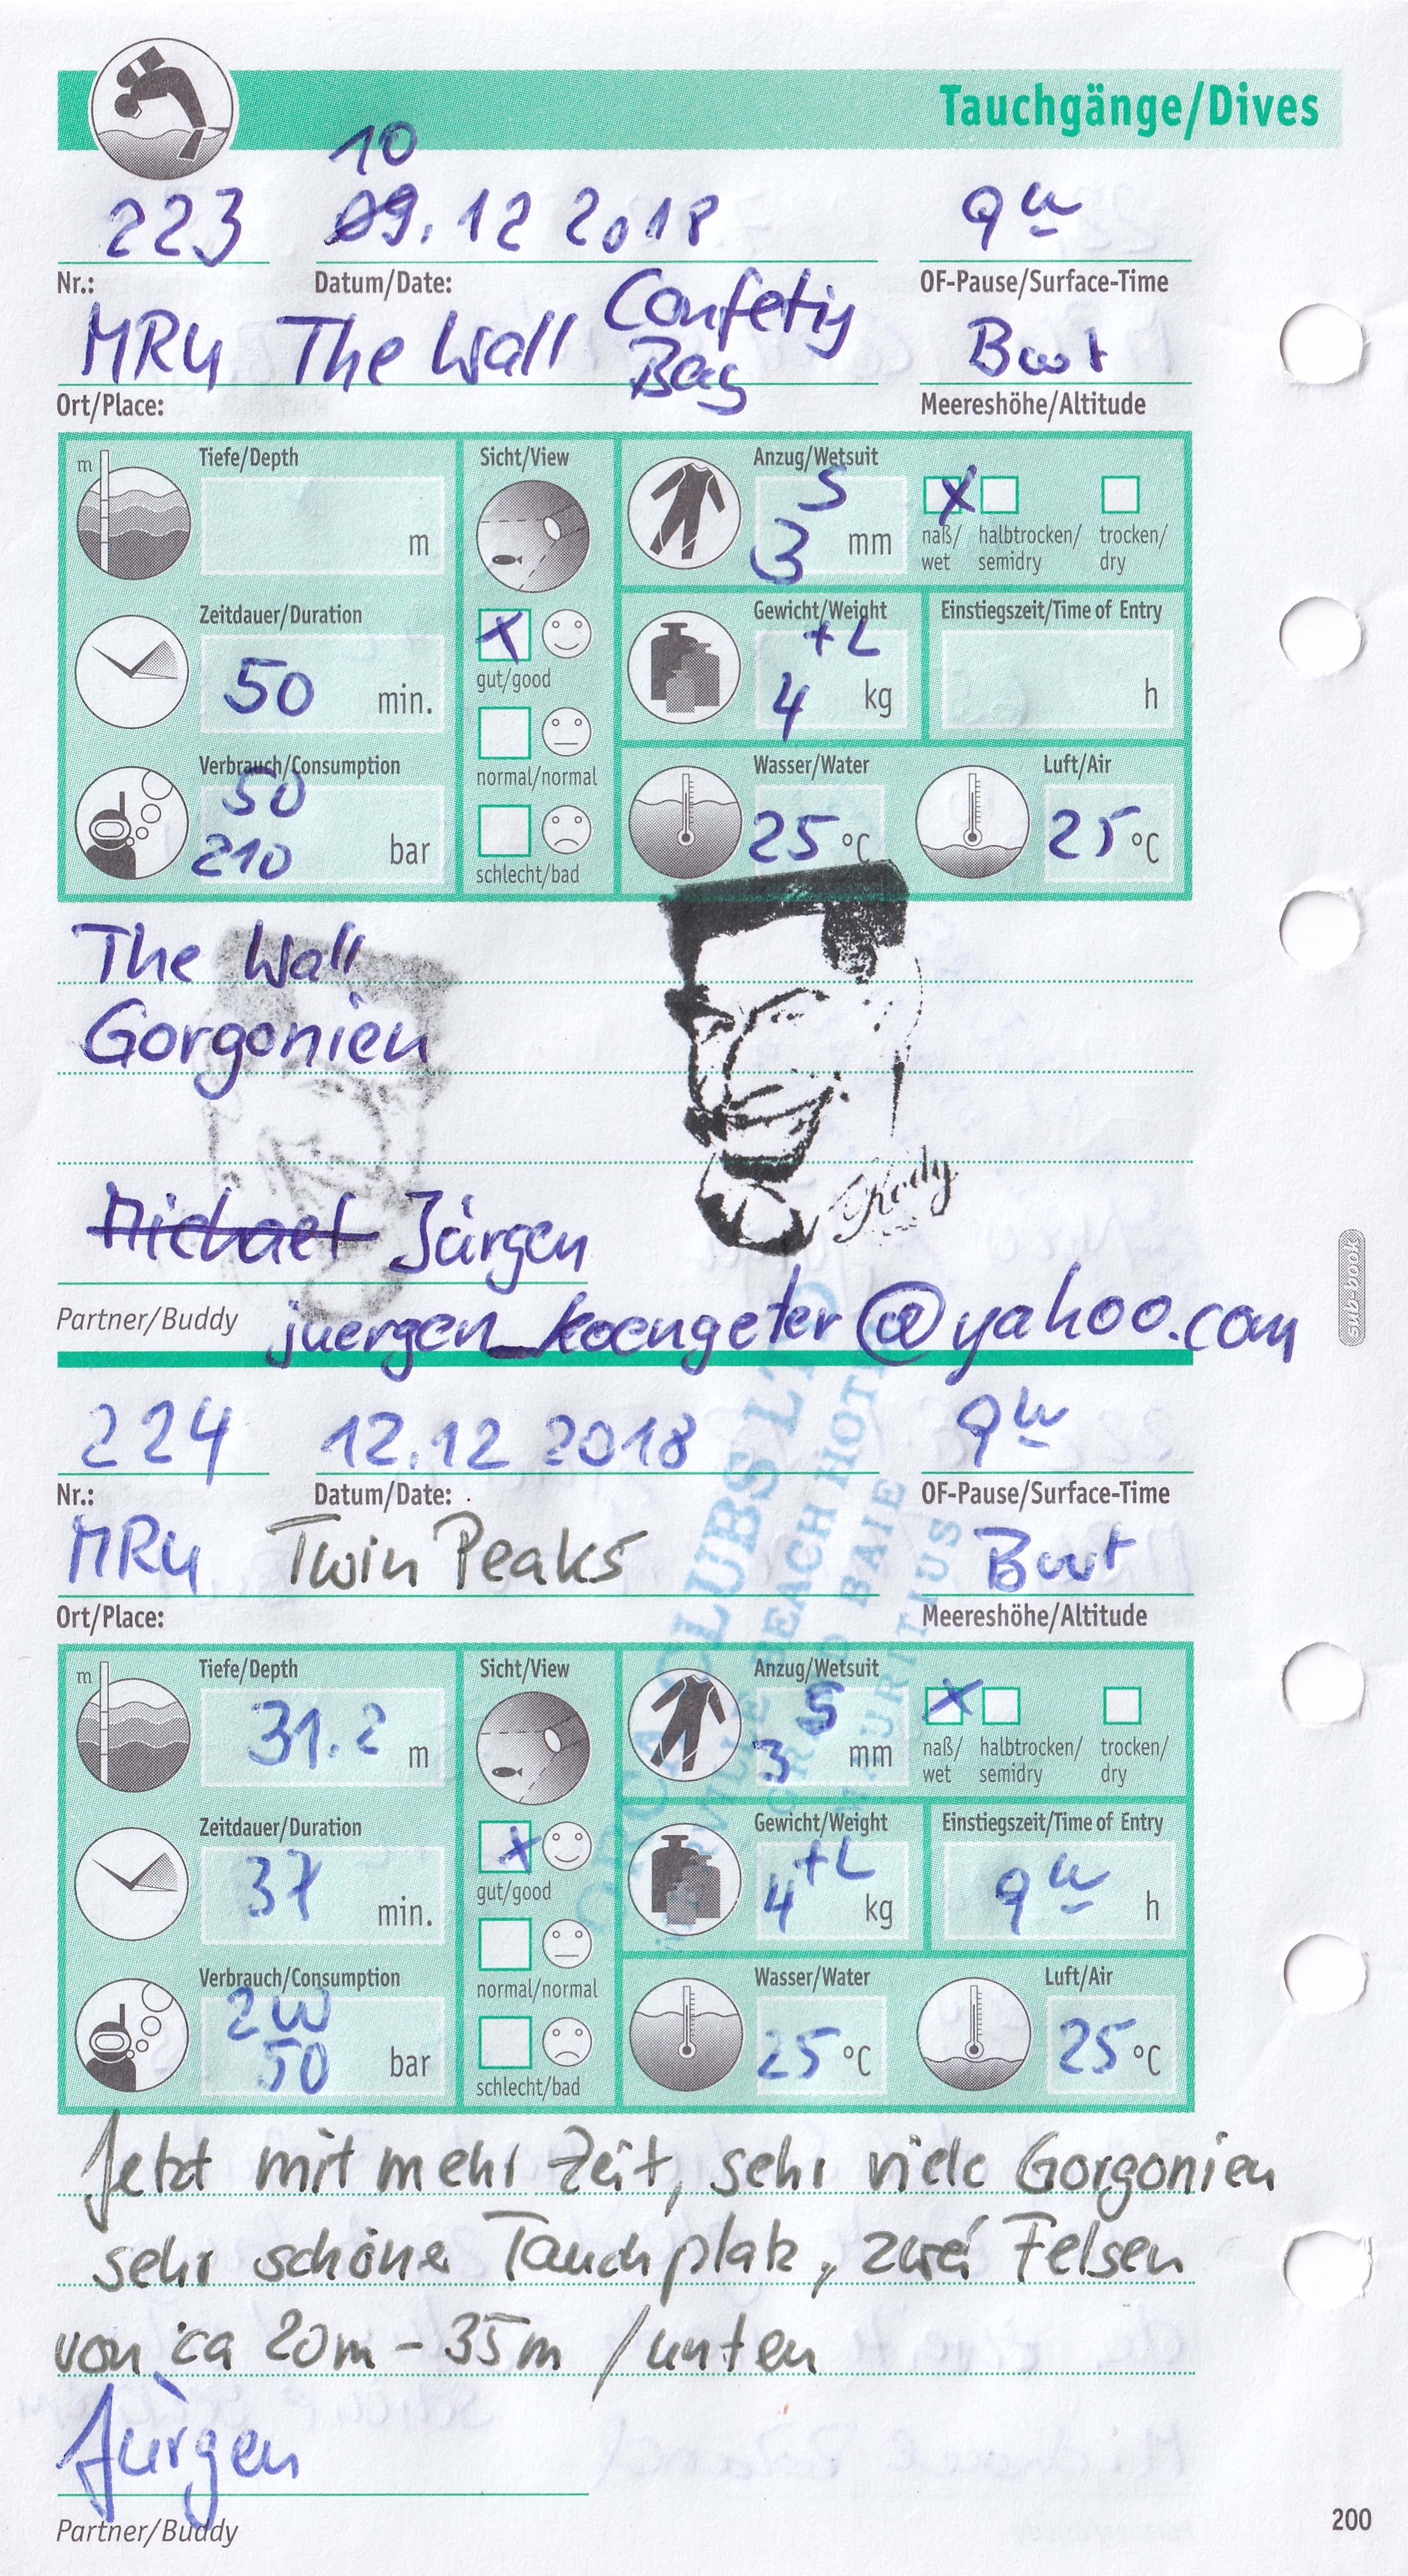 Tauchgänge/Dives
10
223 09.12 2018 9⁰⁰
Nr.: Datum/Date: OF-Pause/Surface-Time
MRU The Wall Confetty Boot
Bay
Ort/Place: Meereshöhe/Altitude
m Tiefe/Depth Sicht/View Anzug/Wetsuit
5
m 3 mm naß/ halbtrocken/ trocken/
wet semidry dry
Zeitdauer/Duration Gewicht/Weight Einstiegszeit/Time of Entry
X +L
50 min. gut/good 4 kg h
normal/normal
Verbrauch/Consumption Wasser/Water Luft/Air
50
210 bar 25 °C 25 °C
schlecht/bad
The Wall
Gorgonien
Kody
Michael Jürgen
Partner/Buddy juergen_koengeter@yahoo.com
sub-book
224 12.12 2018 9⁰⁰
Nr.: Datum/Date: OF-Pause/Surface-Time
MRU Twin Peaks Boot
Ort/Place: Meereshöhe/Altitude
m Tiefe/Depth Sicht/View Anzug/Wetsuit
5 X
31.2 m 3 mm naß/ halbtrocken/ trocken/
wet semidry dry
Zeitdauer/Duration Gewicht/Weight Einstiegszeit/Time of Entry
X +L
37 min. gut/good 4 kg 9⁰⁰ h
Verbrauch/Consumption normal/normal Wasser/Water Luft/Air
200
50 bar 25 °C 25 °C
schlecht/bad
Jetzt mit mehr Zeit, sehr viele Gorgonien
sehr schöner Tauchplatz, zwei Felsen
von ca 20m - 35m / unten
Jürgen
Partner/Buddy
200